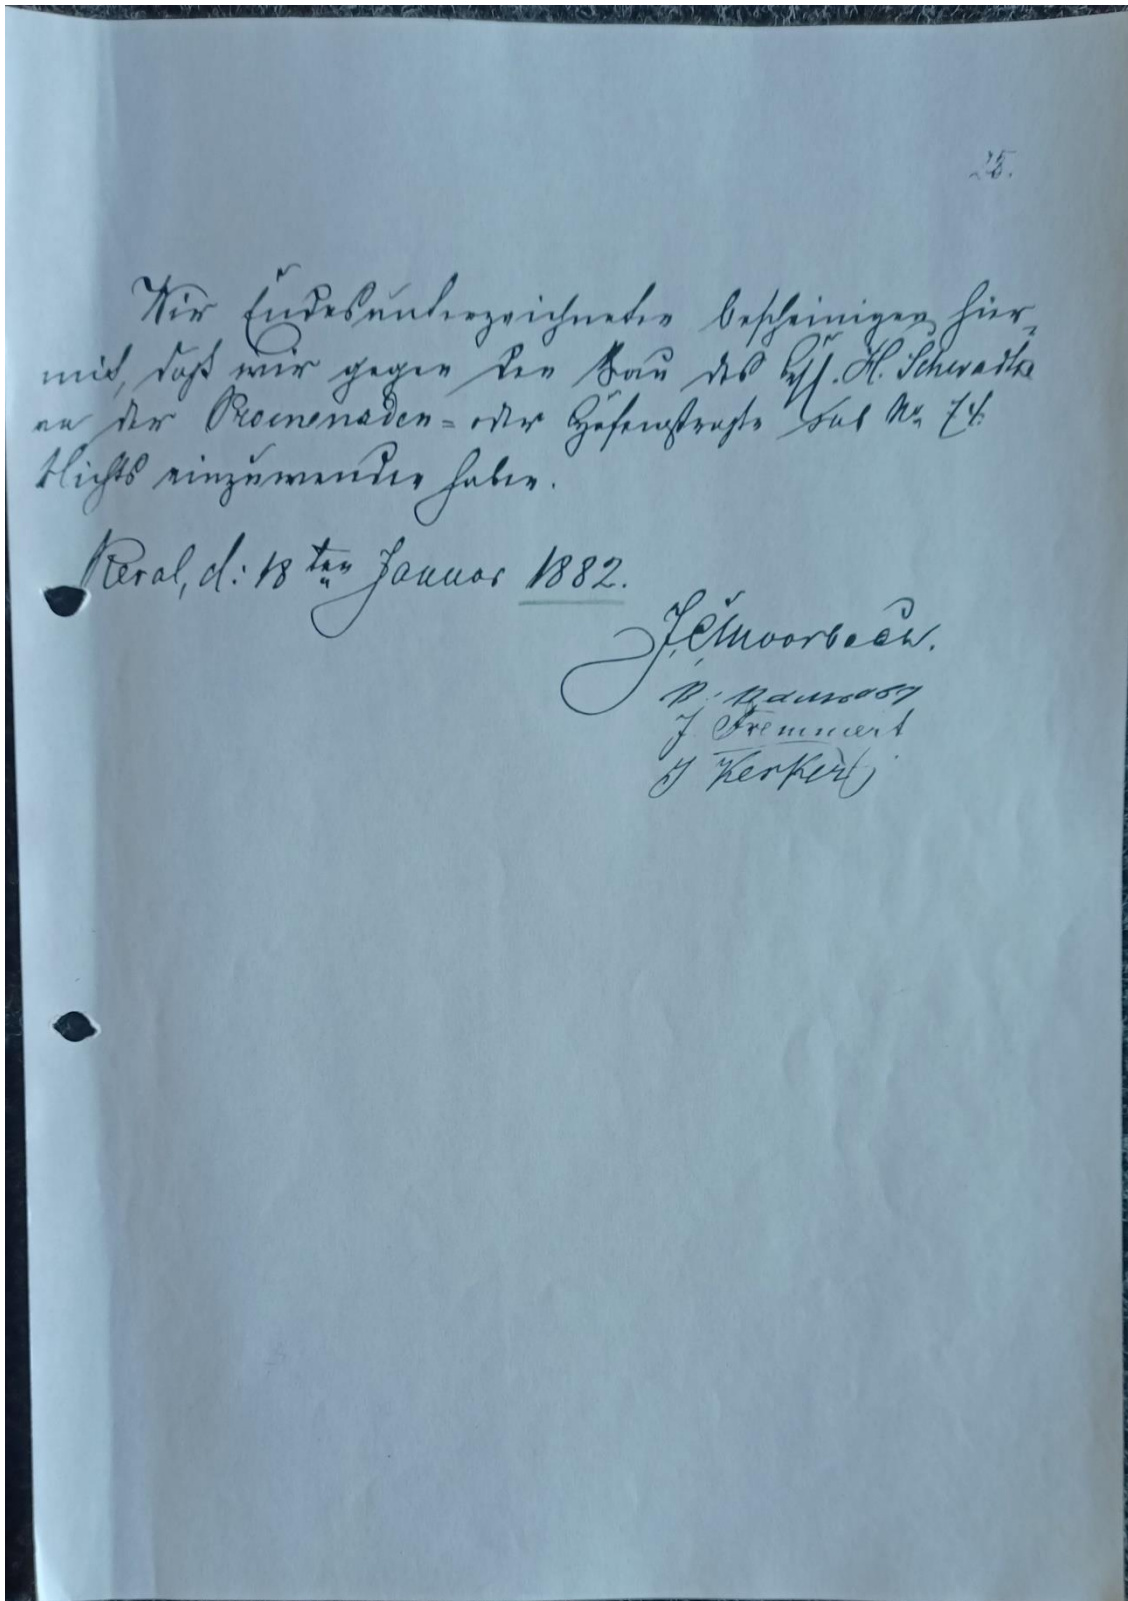 25.
Wir Endesunterzeichneten bescheinigen hier-
mit, daß wir gegen den Bau des H. Schwadtke
an der Promenaden- oder straße sub No 74
Nichts einzuwenden haben.
Reval, d: 18ten Januar 1882.
J. C. Muorbach.
J Fremmert
J Kerkert